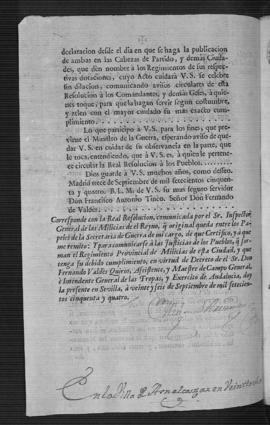 declaracion desde el dia en que se haga la publicacion
de ambas en las Cabezas de Partido, y demás Ciuda-
des, que dén nombre à los Regimientos de sus respec-
tivas dotaciones, cuyo Acto cuidarà V.S. se celebre
sin dilacion, comunicando avisos circulares de esta
Resolucion à los Comandantes, y demás Gefes, à quie-
nes toque, para que la hagan servir segun costumbre,
y zelen con el mayor cuidado su mas exacto cum-
plimiento.
Lo que participo à V.S. para los fines, que pre-
viene el Ministro de la Guerra, esperando aviso de que-
dar V.S. en cuidar de su observancia en la parte, que
le toca, entendiendo, que à V.S. es, à quien le pertene-
ce circular la Real Resolucion à los Pueblos.
Dios guarde à V.S. muchos años, como deseo.
Madrid trece de Septiembre de mil setecientos cinquen-
ta y quatro. B.L.M. de V.S. su mas seguro servidor
Don Francisco Antonio Tineo. Señor Don Fernando
de Valdés.
Corresponde con la Real Resolucion, comunicada por el Sr. Inspector
General de las Milicias del Reyno, q̃ original queda entre los Pa-
peles de la Secretaría de Guerra de mi cargo, de que Certifico, y à que
me remito: Y para comunicarse à las Justicias de los Pueblos, q̃ for-
man el Regimiento Provincial de Milicias de esta Ciudad, y que
tenga su debido cumplimiento, en virtud de Decreto de el Sr. Don
Fernando Valdés Quiros, Assistente, y Maestre de Campo General,
è Intendente General de las Tropas, y Exercito de Andalucia, doy
la presente en Sevilla, à veinte y seis de Septiembre de mil setecien-
tos cinquenta y quatro.
En la Villa de Aznalcazar en Veinte